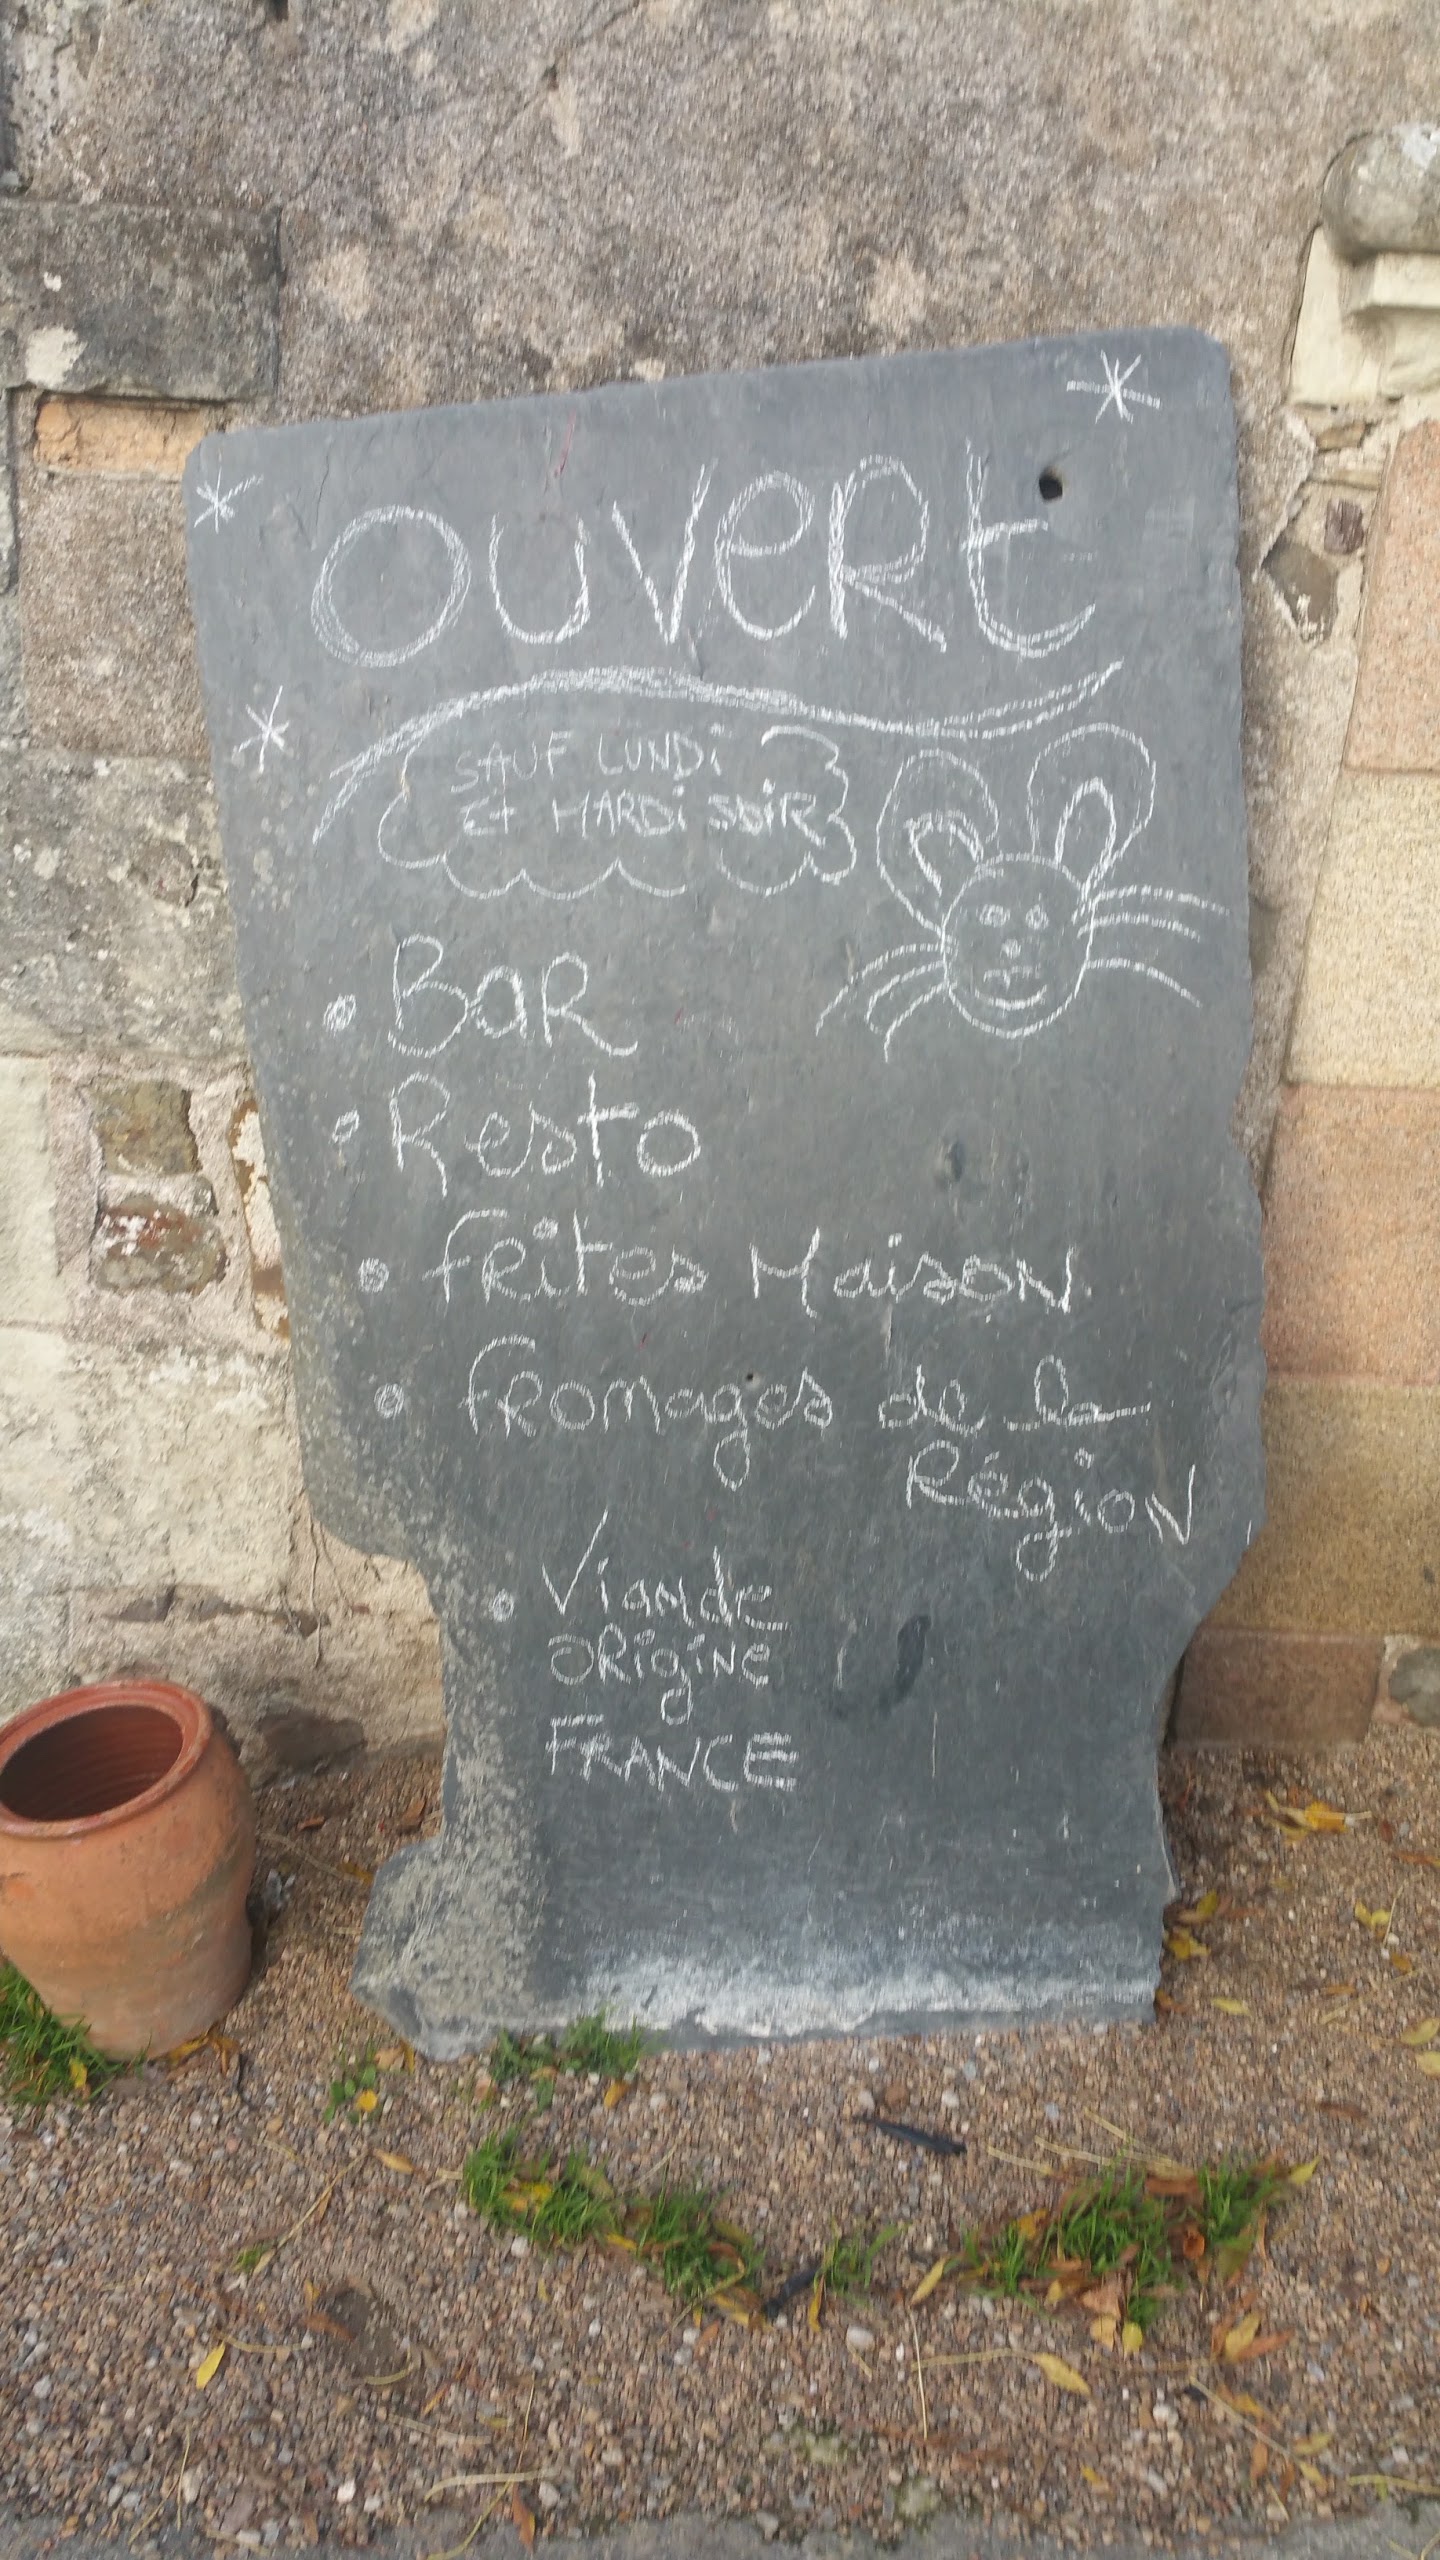 OUVERT
SAUF LUNDI
ET MARDI SOIR
• BAR
• Resto
• FRites Maison
• FROMages de la
Région
• Viande
ORigine
FRANCE